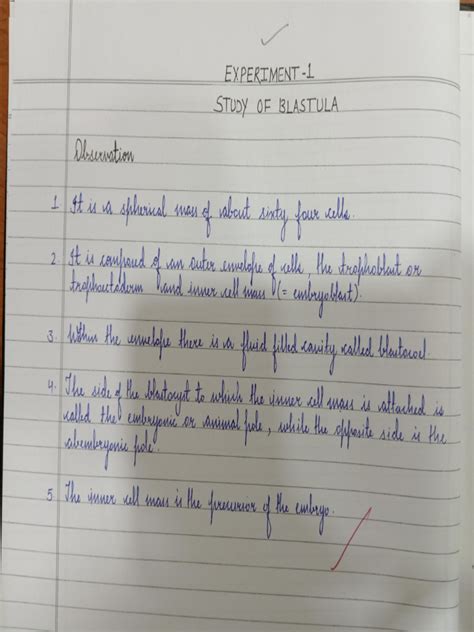 EXPERIMENT-1
STUDY OF BLASTULA
Observation
1. It is a spherical mass of about sixty four cells.
2. It is composed of an outer envelope of cells, the trophoblast or
trophoectoderm and inner cell mass (= embryoblast).
3. Within the envelope there is a fluid filled cavity called blastocoel.
4. The side of the blastocyst to which the inner cell mass is attached is
called the embryonic or animal pole, while the opposite side is the
abembryonic pole.
5. The inner cell mass is the precursor of the embryo.